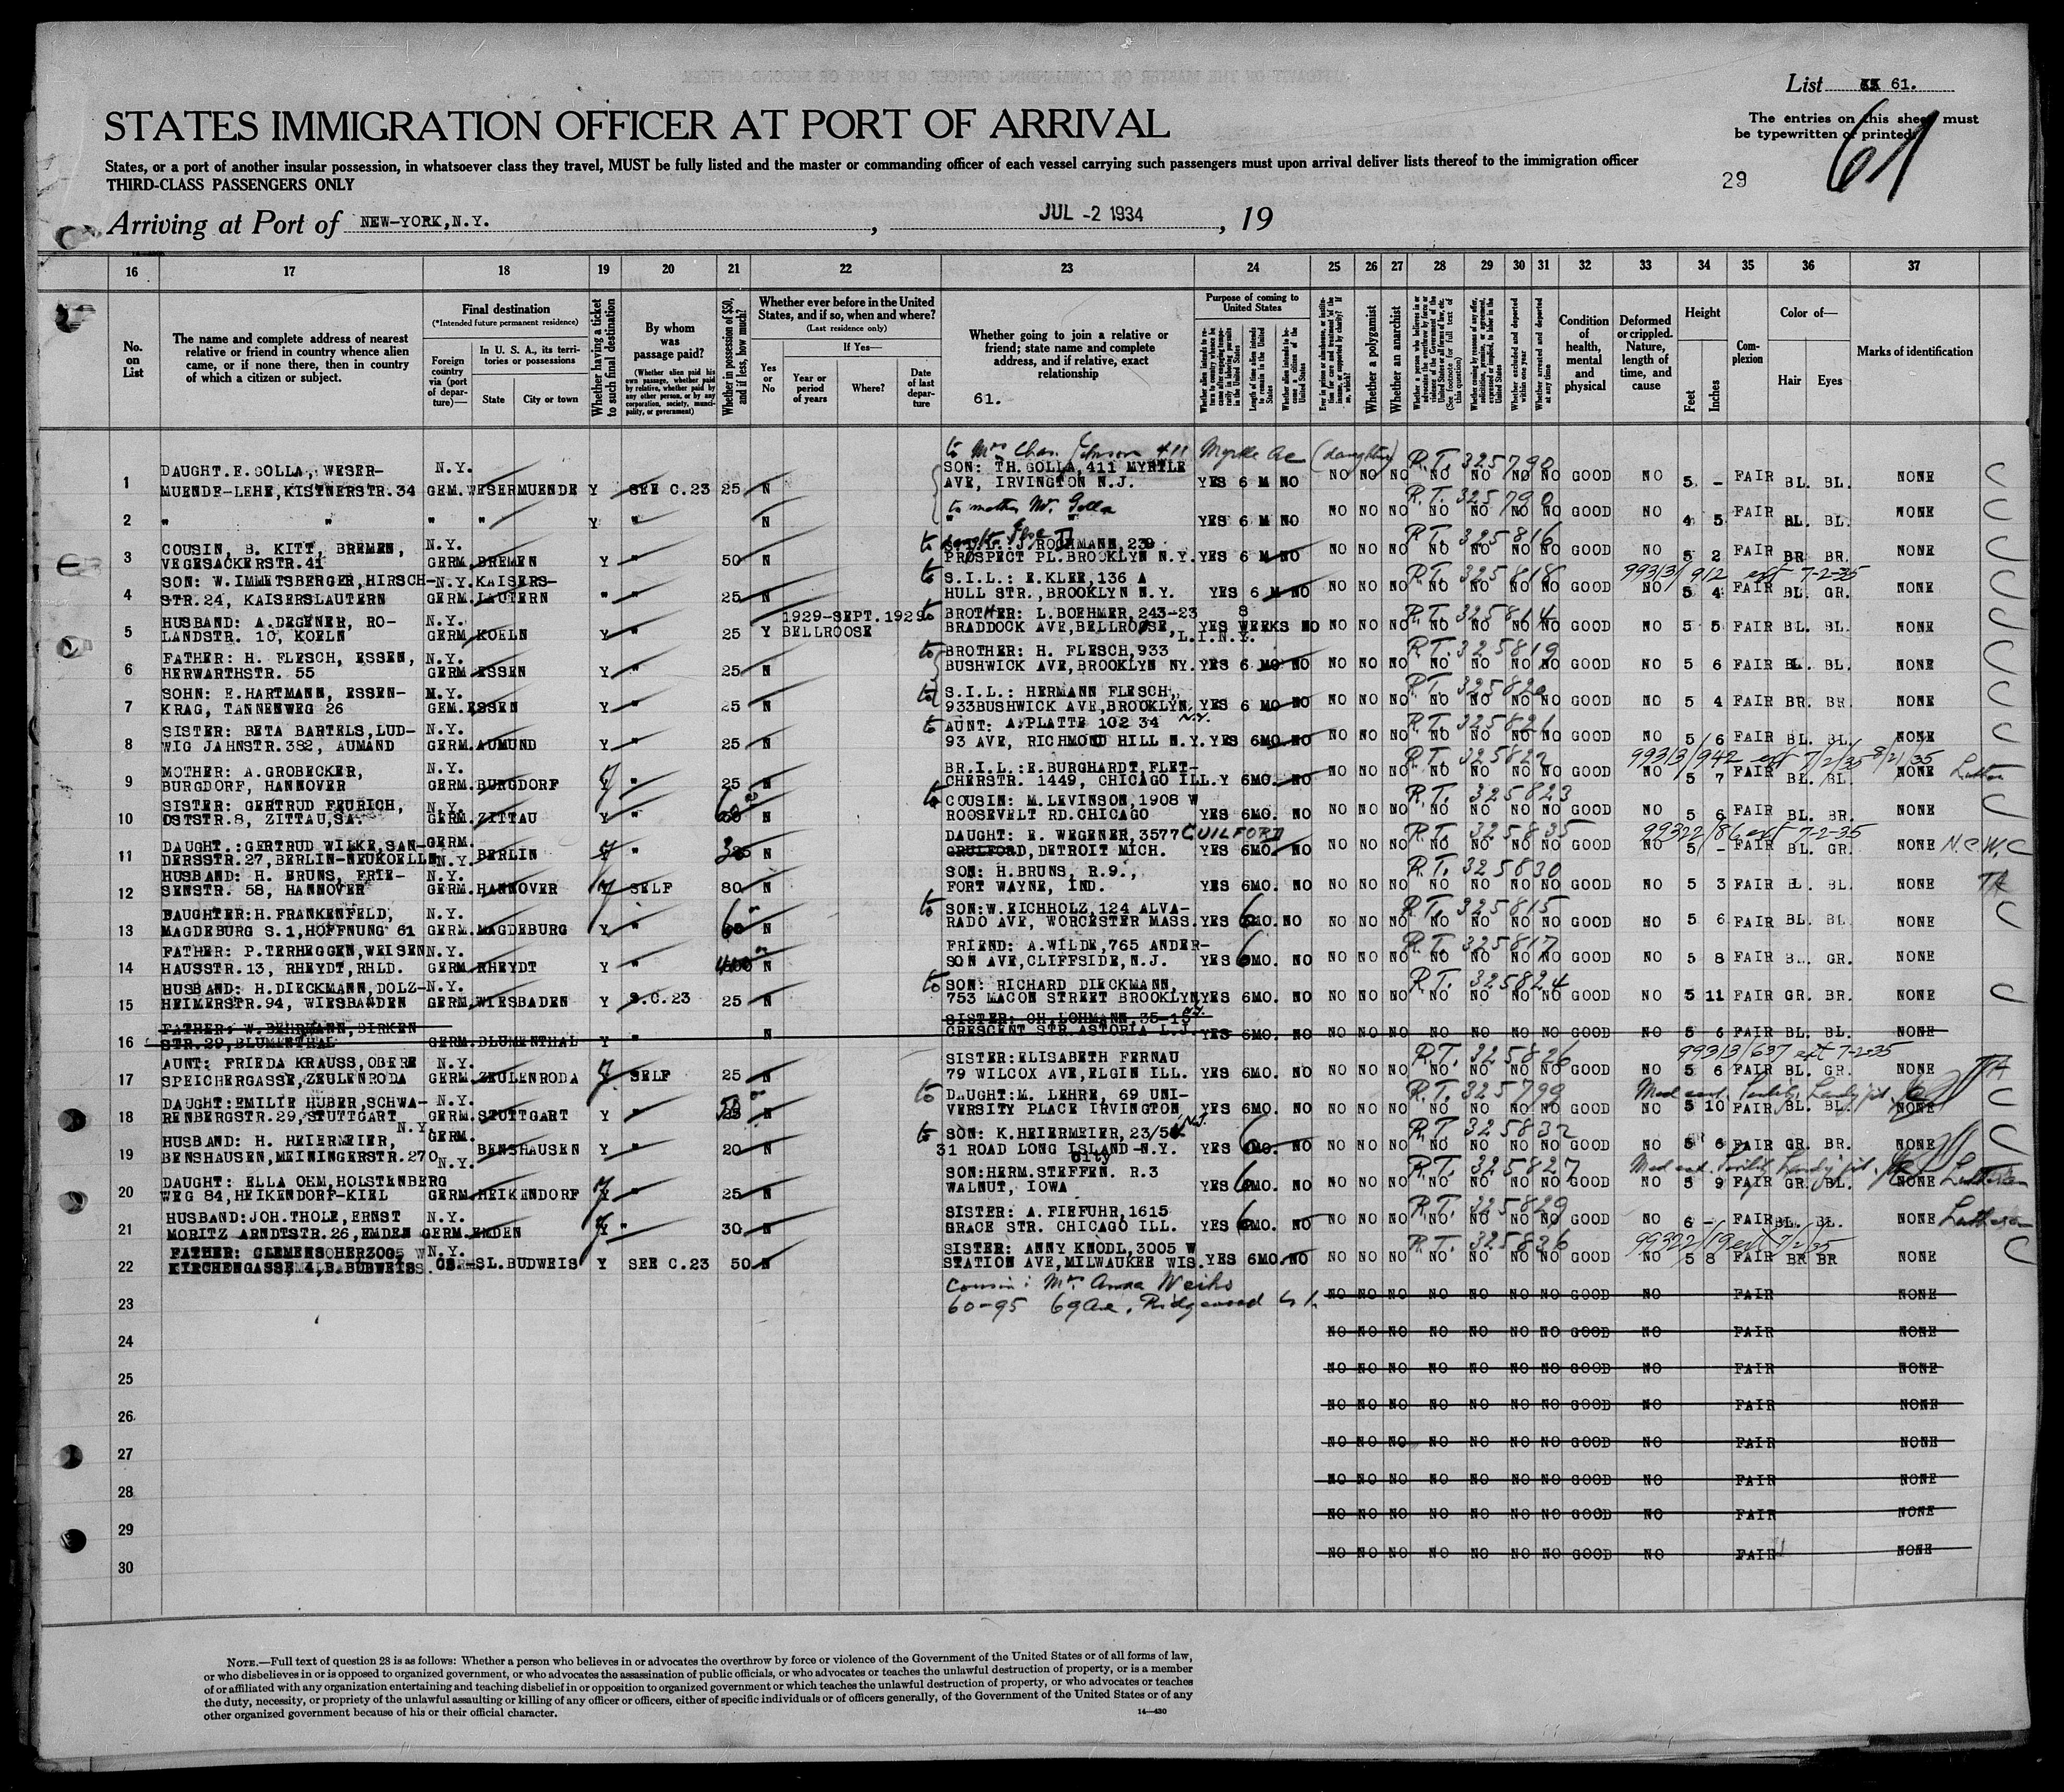 List 61.
The entries on this sheet must
be typewritten or printed.
61
29
STATES IMMIGRATION OFFICER AT PORT OF ARRIVAL
States, or a port of another insular possession, in whatsoever class they travel, MUST be fully listed and the master or commanding officer of each vessel carrying such passengers must upon arrival deliver lists thereof to the immigration officer
THIRD-CLASS PASSENGERS ONLY
Arriving at Port of NEW-YORK,N.Y. , JUL -2 1934 , 19
16 17 18 19 20 21 22 23 24 25 26 27 28 29 30 31 32 33 34 35 36 37
No. on List
The name and complete address of nearest relative or friend in country whence alien came, or if none there, then in country of which a citizen or subject.
Final destination
(*Intended future permanent residence)
Foreign country via (port of departure)—
In U. S. A., its territories or possessions
State City or town
Whether having a ticket to such final destination
By whom was passage paid?
(Whether alien paid his own passage, whether paid by relative, whether paid by any other person, or by any corporation, society, municipality, or government)
Whether in possession of $50, and if less, how much?
Whether ever before in the United States, and if so, when and where?
(Last residence only)
Yes or No
If Yes—
Year or period of years
Where?
Date of last departure
Whether going to join a relative or friend; state name and complete address, and if relative, exact relationship
61.
Purpose of coming to United States
Length of time alien intends to remain in the United States
Whether a polygamist
Whether an anarchist
(See footnote for full text of this question)
Whether excluded and deported within one year
Whether arrested and deported at any time
Condition of health, mental and physical
Deformed or crippled. Nature, length of time, and cause
Height
Feet Inches
Complexion
Color of—
Hair Eyes
Marks of identification
to Mrs Chas. Johnson 411 Myrtle Ave (daughter) R.T. 325790
1 DAUGHT.E.GOLLA, WESER- N.Y. SON: TH.GOLLA,411 MYRTLE
MUENDE-LEHE,KISTNERSTR.34 GEM.WESERMUENDE Y SEE C.23 25 N AVE, IRVINGTON N.J. YES 6 M NO NO NO NO NO NO NO NO GOOD NO 5 - FAIR BL. BL. NONE C
to mother W. Golla R.T. 325790
2 " " " " Y " N " " YES 6 M NO NO NO NO NO NO NO NO GOOD NO 4 5 FAIR BL. BL. NONE C
3 COUSIN, B. KITT, BREMEN, N.Y. to S.I.L.: J.ROHMANN,239 R.T. 325816
VEGESACKERSTR.41 GERM.BREMEN Y " 50 N PROSPECT PL.BROOKLYN N.Y. YES 6 M NO NO NO NO NO NO NO NO GOOD NO 5 2 FAIR BR BR. NONE C
4 SON: W.IMMETSBERGER,HIRSCH- N.Y. KAISERS- to S.I.L.: E.KLEE,136 A R.T. 325818 99313/912 ext 7-2-35
STR.24, KAISERSLAUTERN GERM.LAUTERN " " 25 N HULL STR.,BROOKLYN N.Y. YES 6 M NO NO NO NO NO NO NO NO GOOD NO 5 4 FAIR BL. GR. NONE C
5 HUSBAND: A.DEGENER, RO- N.Y. 1929-SEPT.1929 to BROTHER: L.BOEHMER,243-23 8 R.T. 325814
LANDSTR. 10, KOELN GERM.KOELN Y " 25 Y BELLROOSE BRADDOCK AVE,BELLROOSE, L.I.N.Y. YES WEEKS NO NO NO NO NO NO NO NO GOOD NO 5 5 FAIR BL. BL. NONE C
6 FATHER: H. FLESCH, ESSEN, N.Y. to BROTHER: H. FLESCH,933 R.T. 325819
HERWARTHSTR. 55 GERM.ESSEN Y " 25 N BUSHWICK AVE,BROOKLYN NY. YES 6 MO NO NO NO NO NO NO NO NO GOOD NO 5 6 FAIR BL. BL. NONE C
7 SOHN: E.HARTMANN, ESSEN- N.Y. to S.I.L.: HERMANN FLESCH, R.T. 325820
KRAG, TANNENWEG 26 GEM.ESSEN Y " 25 N 933BUSHWICK AVE,BROOKLYN, N.Y. YES 6 MO NO NO NO NO NO NO NO NO GOOD NO 5 4 FAIR BR. BR. NONE C
8 SISTER: BETA BARTELS,LUD- N.Y. to AUNT: A.PLATTE 102 34 R.T. 325821
WIG JAHNSTR.382, AUMAND GERM.AUMUND Y " 25 N 93 AVE, RICHMOND HILL N.Y. YES 6MO. NO NO NO NO NO NO NO NO GOOD NO 5 6 FAIR BL. BL. NONE C
9 MOTHER: A.GROBECKER, N.Y. BR.I.L.:E.BURGHARDT,FLET- R.T. 325822 99313/942 ext 7/2/35 8/2/35
BURGDORF, HANNOVER GERM.BURGDORF Y " 25 N CHERSTR. 1449, CHICAGO ILL. Y 6MO. NO NO NO NO NO NO NO NO GOOD NO 5 7 FAIR BL. BL. NONE
10 SISTER: GERTRUD FEURICH, N.Y. to COUSIN: M.LEVINSON,1908 W R.T. 325823
OSTSTR.8, ZITTAU,SA. GERM.ZITTAU Y " 60 N ROOSEVELT RD.CHICAGO YES 6MO. NO NO NO NO NO NO NO NO GOOD NO 5 6 FAIR BL. BR. NONE C
11 DAUGHT.:GERTRUD WILKE,SAN- GERM. DAUGHT: E. WEGENER,3577 GUILFORD R.T. 325835 99322/86 ext 7-2-35
DERSSTR.27,BERLIN-NEUKOELLN N.Y. BERLIN Y " N GRULFORD,DETROIT MICH. YES 6MO. NO NO NO NO NO NO NO NO GOOD NO 5 - FAIR BL. GR. NONE N.C.W.C
12 HUSBAND: H. BRUNS, FRIE- N.Y. SON: H.BRUNS, R.9., R.T. 325830
SENSTR. 58, HANNOVER GERM.HANNOVER Y SELF 80 N FORT WAYNE, IND. YES 6MO. NO NO NO NO NO NO NO NO GOOD NO 5 3 FAIR BL. BL. NONE TA
13 DAUGHTER:H.FRANKENFELD, N.Y. to SON:W.EICHHOLZ,124 ALVA- R.T. 325815
MAGDEBURG S.1,HOFFNUNG 61 GERM.MAGDEBURG Y " 60 N RADO AVE, WORCESTER MASS. YES 6MO. NO NO NO NO NO NO NO NO GOOD NO 5 6 FAIR BL. BL. NONE C
14 FATHER: P.TERHEGGEN,WEISEN N.Y. FRIEND: A.WILDE,765 ANDER- R.T. 325817
HAUSSTR.13, RHEYDT,RHLD. GERM.RHEYDT Y " N SON AVE,CLIFFSIDE,N.J. YES 6MO. NO NO NO NO NO NO NO NO GOOD NO 5 8 FAIR BL. GR. NONE
15 HUSBAND: H.DIECKMANN,DOLZ- N.Y. to SON: RICHARD DIECKMANN, R.T. 325824
HEIMERSTR.94, WIESBADEN GERM.WIESBADEN Y S.C.23 25 N 753 MACON STREET BROOKLYN YES 6MO. NO NO NO NO NO NO NO NO GOOD NO 5 11 FAIR GR. BR. NONE C
16 FATHER: W.BEHRMANN,BIRKEN SISTER: CH.LOHMANN,35-15
STR.29,BLUMENTHAL GERM.BLUMENTHAL Y " N CRESCENT STR.ASTORIA L.J. N.Y. YES 6MO. NO NO NO NO NO NO NO NO GOOD NO 5 6 FAIR BL. BL. NONE
17 AUNT: FRIEDA KRAUSS,OBERE N.Y. SISTER:ELISABETH FERNAU R.T. 325826 99313/637 ext 7-2-35
SPEICHERGASSE,ZEULENRODA GERM.ZEULENRODA Y SELF 25 N 79 WILCOX AVE,ELGIN ILL. YES 6MO. NO NO NO NO NO NO NO NO GOOD NO 5 6 FAIR BL. GR. NONE TA
18 DAUGHT:EMILIE HUBER,SCHWA- N.Y. to DAUGHT:M. LEHRE, 69 UNI- R.T. 325799 Med cert. Senility
RENBERGSTR.29,STUTTGART GERM.STUTTGART Y " N VERSITY PLACE IRVINGTON N.J. YES 6MO. NO NO NO NO NO NO NO NO GOOD NO 5 10 FAIR BL. BL. NONE C
19 HUSBAND: H. HEIERMEIER, N.Y. GERM. to SON: K.HEIERMEIER,23/54 R.T. 325832
BENSHAUSEN,MEININGERSTR.270 N.Y. BENSHAUSEN Y " 20 N 31 ROAD LONG ISLAND City N.Y. YES 6MO. NO NO NO NO NO NO NO NO GOOD NO 5 6 FAIR GR. BR. NONE C
20 DAUGHT: ELLA OEM,HOLSTENBERG SON:HERM.STEFFEN. R.3 R.T. 325827 Med cert. Senility
WEG 84,HEIKENDORF-KIEL GERM.HEIKENDORF Y " 25 N WALNUT, IOWA YES 6MO. NO NO NO NO NO NO NO NO GOOD NO 5 9 FAIR GR. BL. NONE Lutheran
21 HUSBAND:JOH.THOLE,ERNST N.Y. SISTER: A.FIEFUHR,1615 R.T. 325829
MORITZ ARNDTSTR.26,EMDEN GERM.EMDEN Y " 30 N GRACE STR. CHICAGO ILL. YES 6MO. NO NO NO NO NO NO NO NO GOOD NO 6 - FAIR BL. BL. NONE Lutheran
22 FATHER: CLEMENS HERZOG, N.Y. SISTER: ANNY KNODL,3005 W R.T. 325836 99322/19 ext 7/2/35
KIRCHENGASSE,4,B.BUDWEIS CS.-SL.BUDWEIS Y SEE C.23 50 N STATION AVE,MILWAUKEE WIS. YES 6MO. NO NO NO NO NO NO NO NO GOOD NO 5 8 FAIR BR BR NONE C
cousin: Mrs. Anna Weiks
23 60-95 69 Ave, Ridgewood L.I. NO NO NO NO NO NO NO GOOD NO FAIR NONE
24 NO NO NO NO NO NO NO GOOD NO FAIR NONE
25 NO NO NO NO NO NO NO GOOD NO FAIR NONE
26 NO NO NO NO NO NO NO GOOD NO FAIR NONE
27 NO NO NO NO NO NO NO GOOD NO FAIR NONE
28 NO NO NO NO NO NO NO GOOD NO FAIR NONE
29 NO NO NO NO NO NO NO GOOD NO FAIR NONE
30 NO NO NO NO NO NO NO GOOD NO FAIR NONE
NOTE.—Full text of question 28 is as follows: Whether a person who believes in or advocates the overthrow by force or violence of the Government of the United States or of all forms of law,
or who disbelieves in or is opposed to organized government, or who advocates the assassination of public officials, or who advocates or teaches the unlawful destruction of property, or is a member
of or affiliated with any organization entertaining and teaching disbelief in or opposition to organized government or which teaches the unlawful destruction of property, or who advocates or teaches
the duty, necessity, or propriety of the unlawful assaulting or killing of any officer or officers, either of specific individuals or of officers generally, of the Government of the United States or of any
other organized government because of his or their official character.
14—430